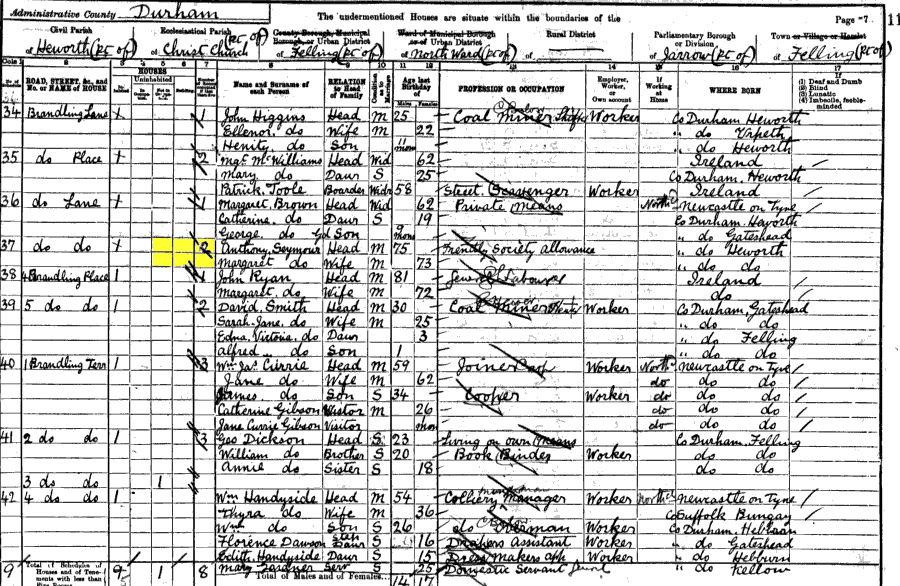 Administrative County of Durham
The undermentioned Houses are situate within the boundaries of the
Page 7
11
Civil Parish
of Heworth (pt of)
Ecclesiastical Parish
of Christ Church (pt of)
County Borough, Municipal Borough or Urban District
of Felling (pt of)
Ward of Municipal Borough or of Urban District
of North Ward (pt of)
Rural District
of
Parliamentary Borough or Division
of Jarrow (pt of)
Town or Village or Hamlet
of Felling (pt of)
ROAD, STREET, &c., and No. or NAME of HOUSE
HOUSES
Uninhabited
Name and Surname of each Person
RELATION to Head of Family
Condition as to Marriage
Age last Birthday of
Males Females
PROFESSION OR OCCUPATION
Employer, Worker, or Own account
If Working at Home
WHERE BORN
If
(1) Deaf and Dumb
(2) Blind
(3) Lunatic
(4) Imbecile, feeble-minded
34 Brandling Lane 1 John Higgins Head M 25 Coal Miner Worker Co Durham Heworth
Ellenor do Wife M 22 " do
do Son 11 mos " do Heworth
35 do Place 2 Mgt McWilliams Head Wid 62 Ireland
Mary do Daur S 25 Co Durham, Heworth
Patrick Toole Boarder Widr 58 Street Scavenger Worker Ireland
36 do Lane 1 Margaret Brown Head Wid 62 Private means North'd Newcastle on Tyne
Catherine do Daur S 19 Co Durham, Heworth
George do Gd Son 9 mos " do Gateshead
37 do do 2 Anthony Seymour Head M 75 Friendly Society allowance " do Heworth
Margaret do Wife M 73 " do do
38 4 Brandling Place 1 John Ryan Head M 81 Labourer Ireland
Margaret do Wife M 72 do
39 5 do do 1 2 David Smith Head M 30 Coal Miner Worker Co Durham, Gateshead
Sarah Jane do Wife M 25 " do do
Edna Victoria do Daur 3 " do Felling
Alfred do Son 1 " do do
40 1 Brandling Terr 1 3 Wm Jas Currie Head M 59 Joiner Worker North'd Newcastle on Tyne
Jane do Wife M 62 do do do
James do Son S 34 Cooper Worker do do do
Catherine Gibson Visitor M 26 do do do
Jane Currie Gibson Visitor mos do do do
41 2 do do 1 3 Geo Dickson Head S 23 Living on own means Co Durham, Felling
William do Brother S 20 Book Binder Worker do do
Annie do Sister S 18 do do
3 do do 1
42 4 do do 1 Wm Handyside Head M 54 Colliery Manager Worker North'd Newcastle on Tyne
Thyra do Wife M 36 Co Suffolk Bungay
Wm do Son S 26 do Worker Co Durham Hebburn
Florence Dawson Step Daur S 16 Drapers Assistant Worker " do Gateshead
Edith Handyside Daur S 15 Dress Makers app Worker " do Hebburn
Mary Serv S 25 Domestic Servant " do
9 Total of Schedules of Houses and of Tenements with less than 9 1 8 Total of Males and of Females 14 17